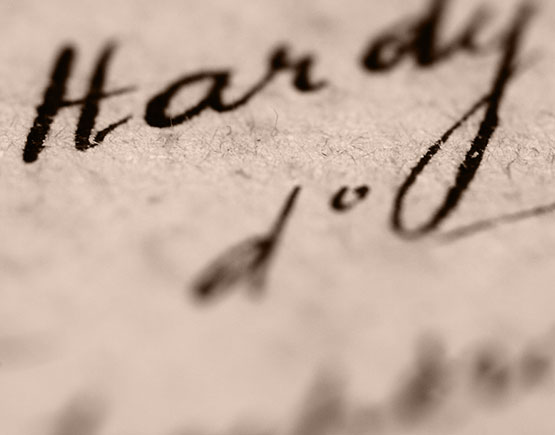 Hardy
do